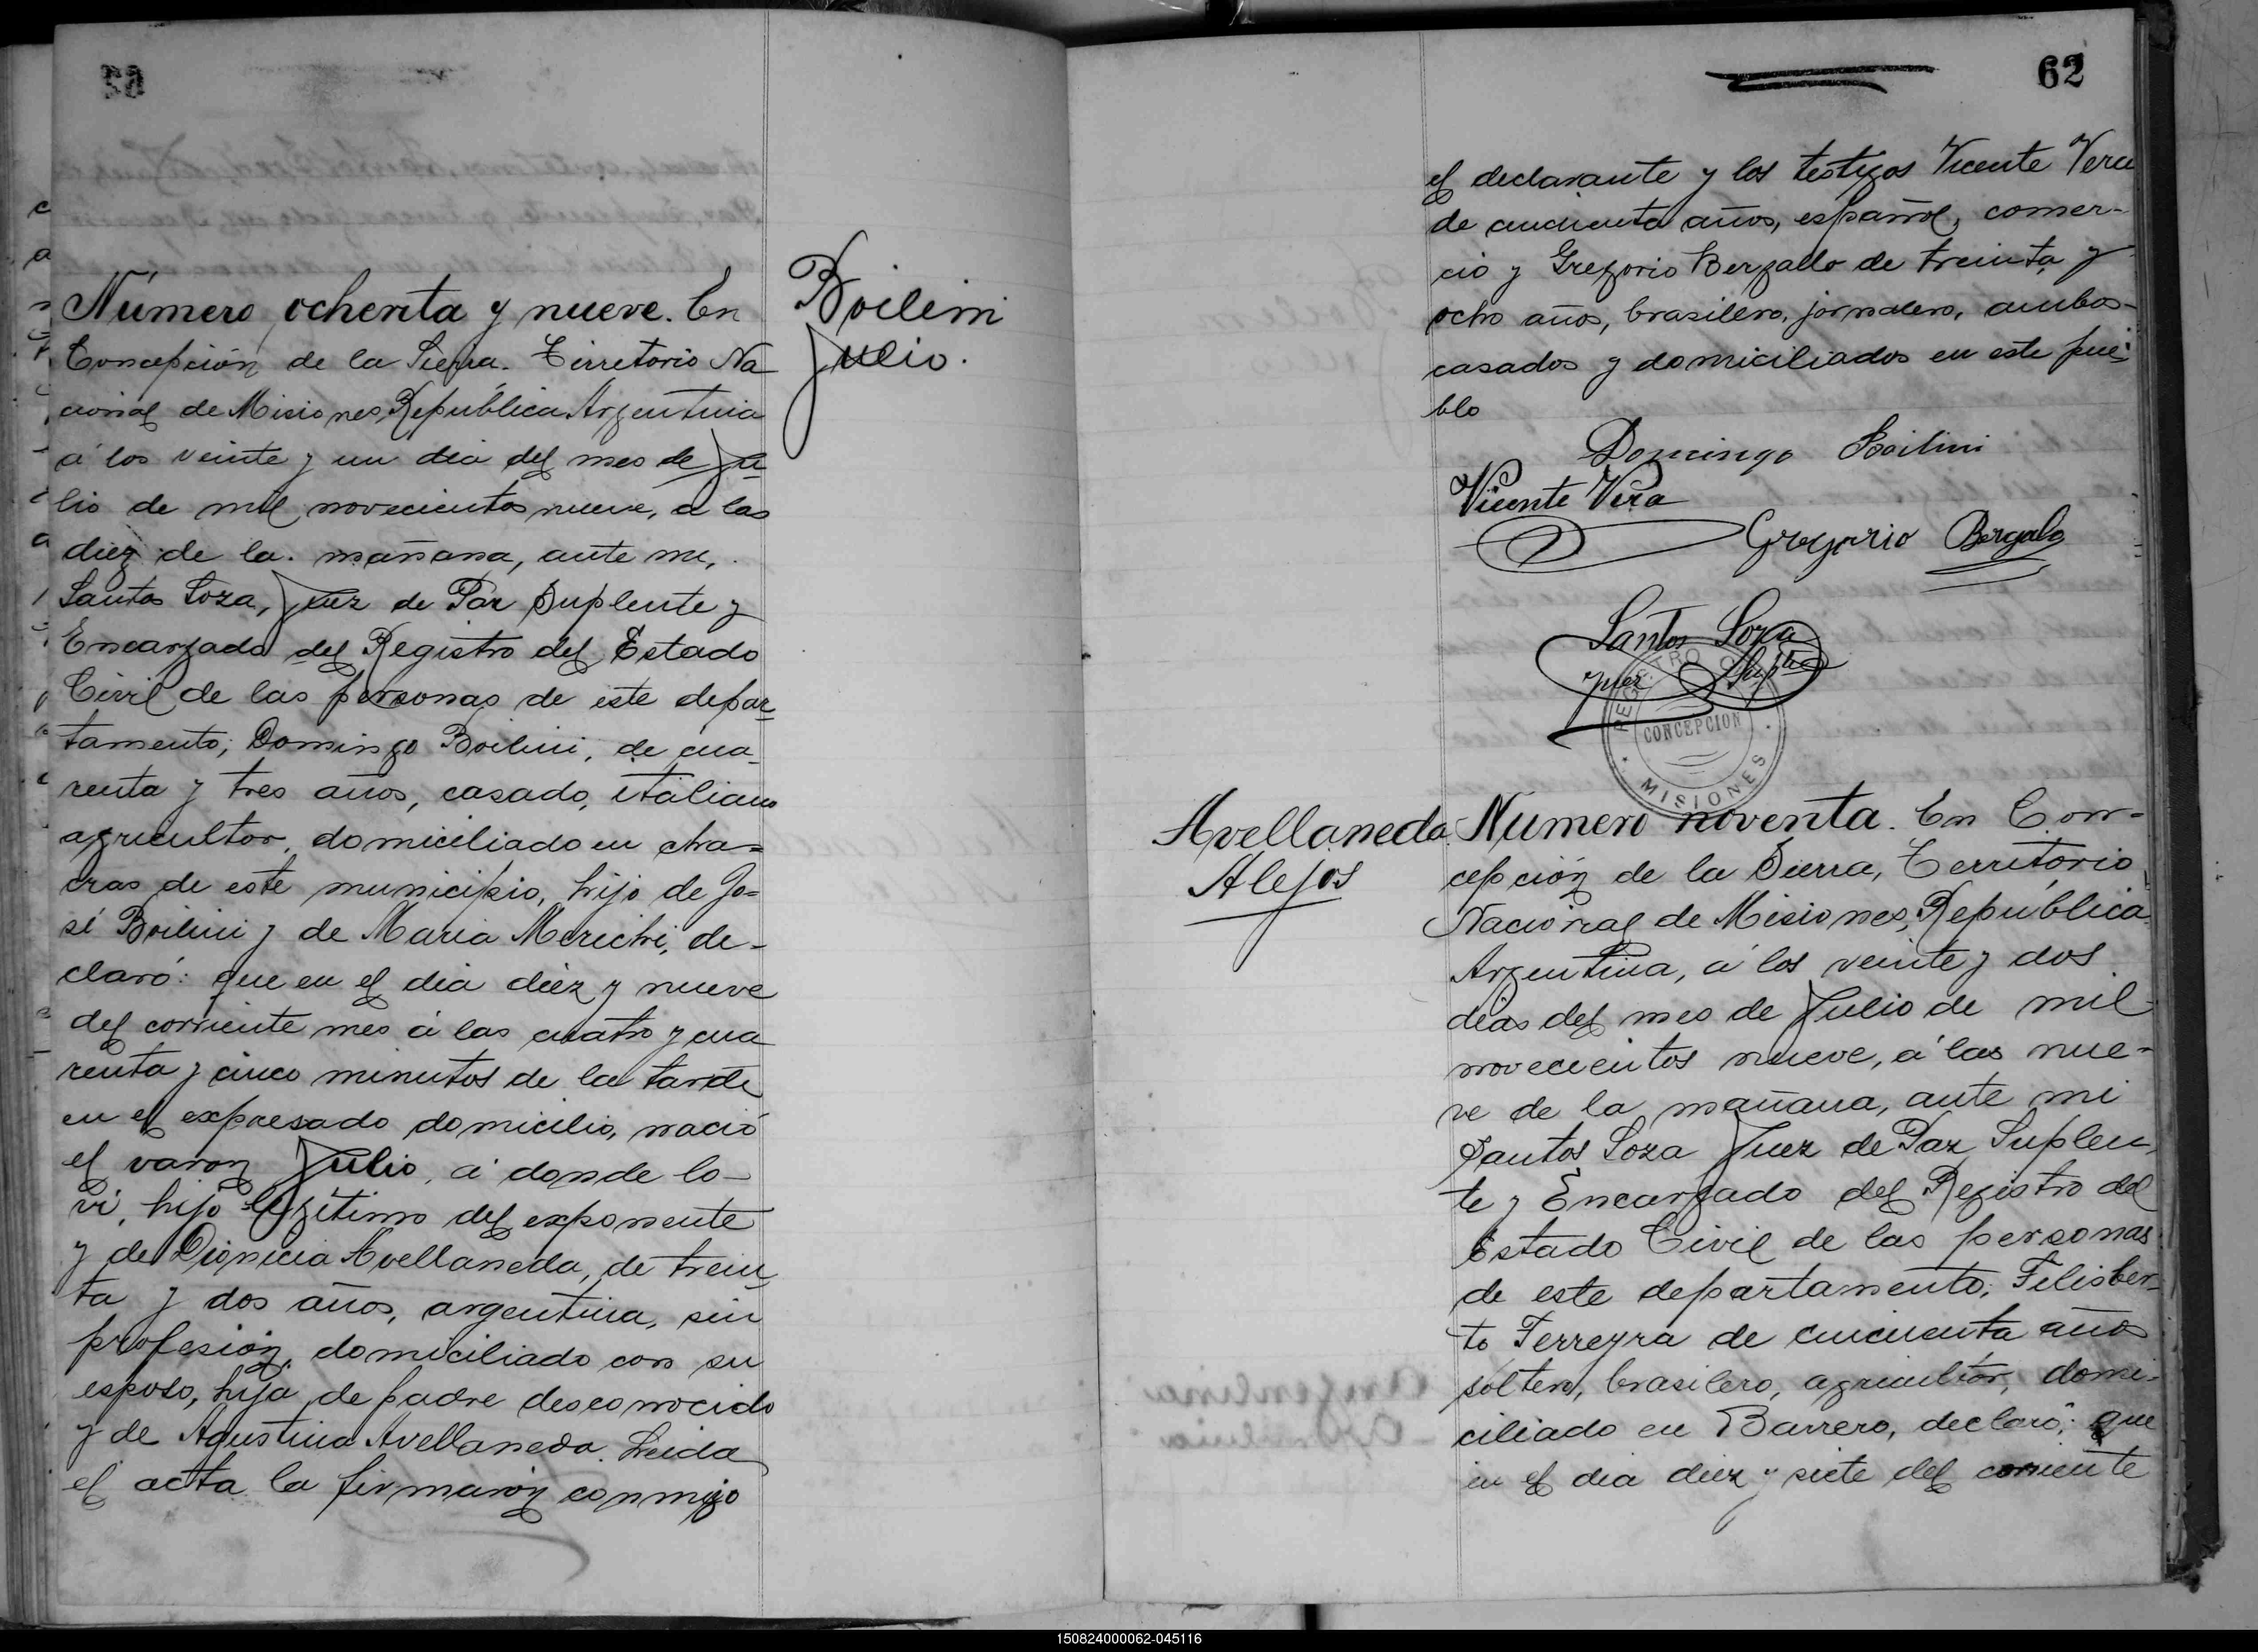 Número ochenta y nueve. En
Concepción de la Sierra. Territorio Na
cional de Misiones, República Argentina
á los veinte y un dia del mes de Ju
lio de mil novecientos nueve, a las
diez de la mañana, ante mi,
Santos Soza, Juez de Paz Suplente y
Encargado del Registro del Estado
Civil de las personas de este depar
tamento; Domingo Boilini, de cua
renta y tres años, casado, italiano
agricultor, domiciliado en cha=
cras de este municipio, hijo de Jo=
sé Boilini y de Maria Merichi, de-
claró: que en el dia diez y nueve
del corriente mes á las cuatro y cua
renta y cinco minutos de la tarde
en el expresado domicilio, nació
el varon Julio, á donde lo
vi, hijo legítimo del exponente
y de Dionicia Avellaneda, de trein
ta y dos años, argentina, sin
profesión, domiciliado con su
esposo, hija de padre desconocido
y de Agustina Avellaneda. Leida
el acta la firmarón conmigo
Boilini
Julio.
62
el declarante y los testigos Vicente Vera
de cincuenta años, español, comer-
cio y Gregorio Bergallo de treinta y
ocho años, brasilero, jornalero, ambos
casados y domiciliados en este pue-
blo
Domingo Boilini
Vicente Vera
Gregorio Bergalo
Santos Soza
Juez Suplte
REGISTRO
CONCEPCION
MISIONES
Avellaneda
Alejos
Número noventa. En Con-
cepción de la Sierra, Territorio
Nacional de Misiones, República
Argentina, á los veinte y dos
dias del mes de Julio de mil
novecientos nueve, á las nue-
ve de la mañana, ante mi
Santos Soza Juez de Paz Suplen
te y Encargado del Registro del
Estado Civil de las personas
de este departamento; Felisber
to Ferreyra de cincuenta años
soltero, brasilero, agricultor, domi-
ciliado en Barrero, declaró: que
en el dia diez y siete del corriente
150824000062-045116